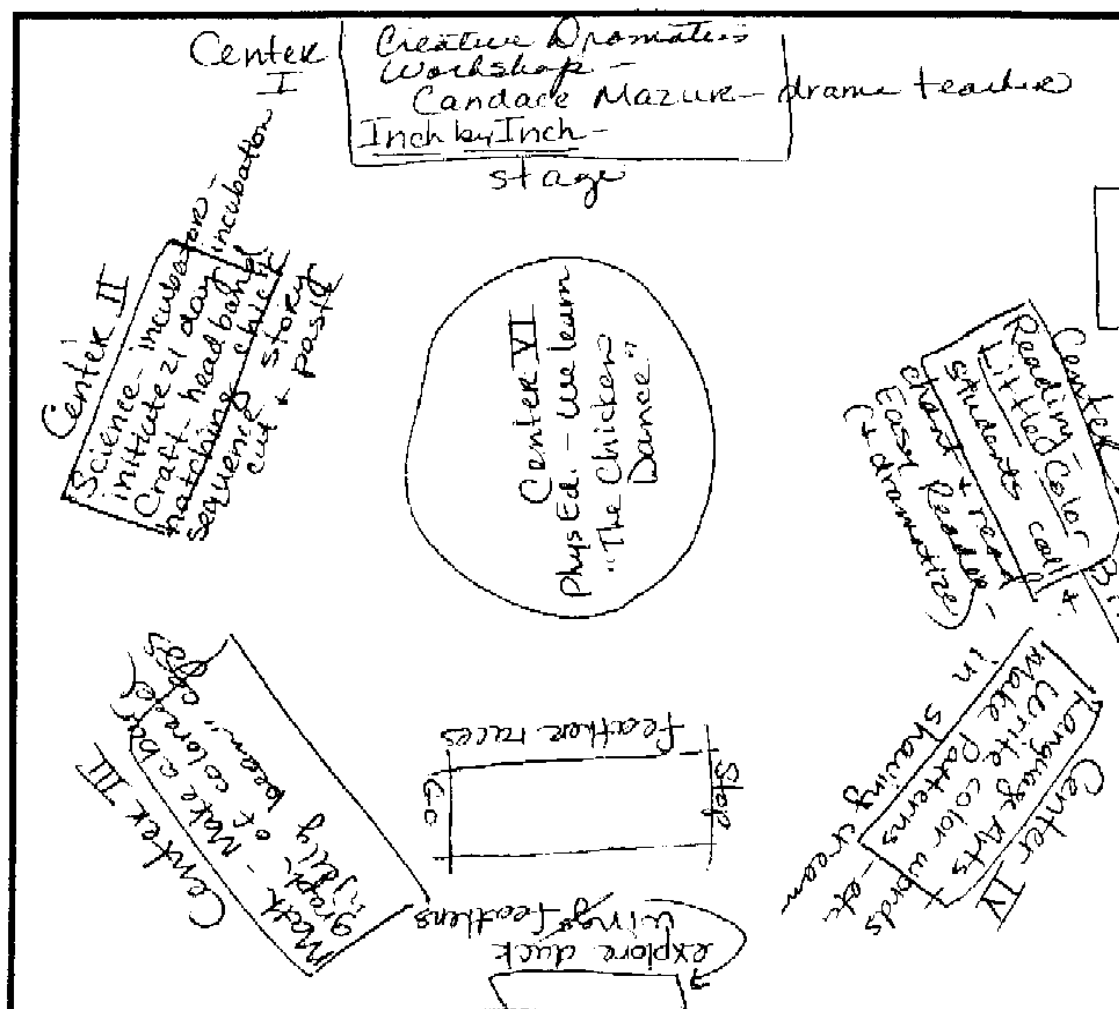 Center
I
Creative Dramatics
Workshop -
Candace Mazur - drama teacher
Inch by Inch -
stage
Center II
Science - incubator -
initiate 21 day incubation
Craft - headband
hatching chick
sequence story
cut + paste
Center VI
Phys Ed. - We learn
"The Chicken
Dance."
Center
Reading -
Little Color
students call +
chant + read
Easy Reader -
(+ dramatize)
Center III
Math - Make a bar
graph of colored
"jelly beans"
feather races
Go
Stop
wing feathers
explore duck
Center IV
Language Arts
Write color words +
Make patterns - etc
in shaving cream